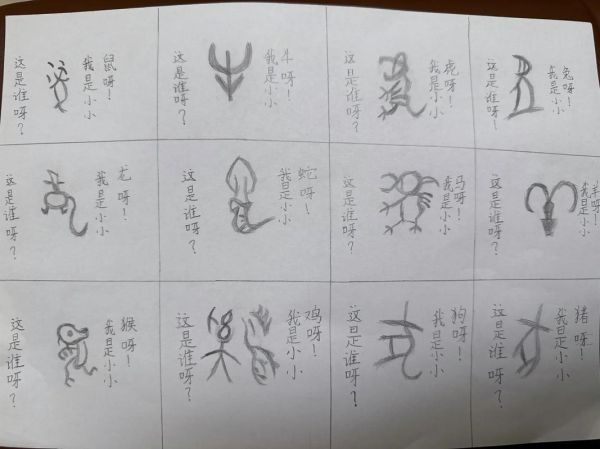 这是谁呀？
我是小小
鼠呀！
这是谁呀？
我是小小
牛呀！
这是谁呀？
我是小小
虎呀！
这是谁呀？
我是小小
兔呀！
这是谁呀？
我是小小
龙呀！
这是谁呀？
我是小小
蛇呀！
这是谁呀？
我是小小
马呀！
这是谁呀？
我是小小
羊呀！
这是谁呀？
我是小小
猴呀！
这是谁呀？
我是小小
鸡呀！
这是谁呀？
我是小小
狗呀！
这是谁呀？
我是小小
猪呀！